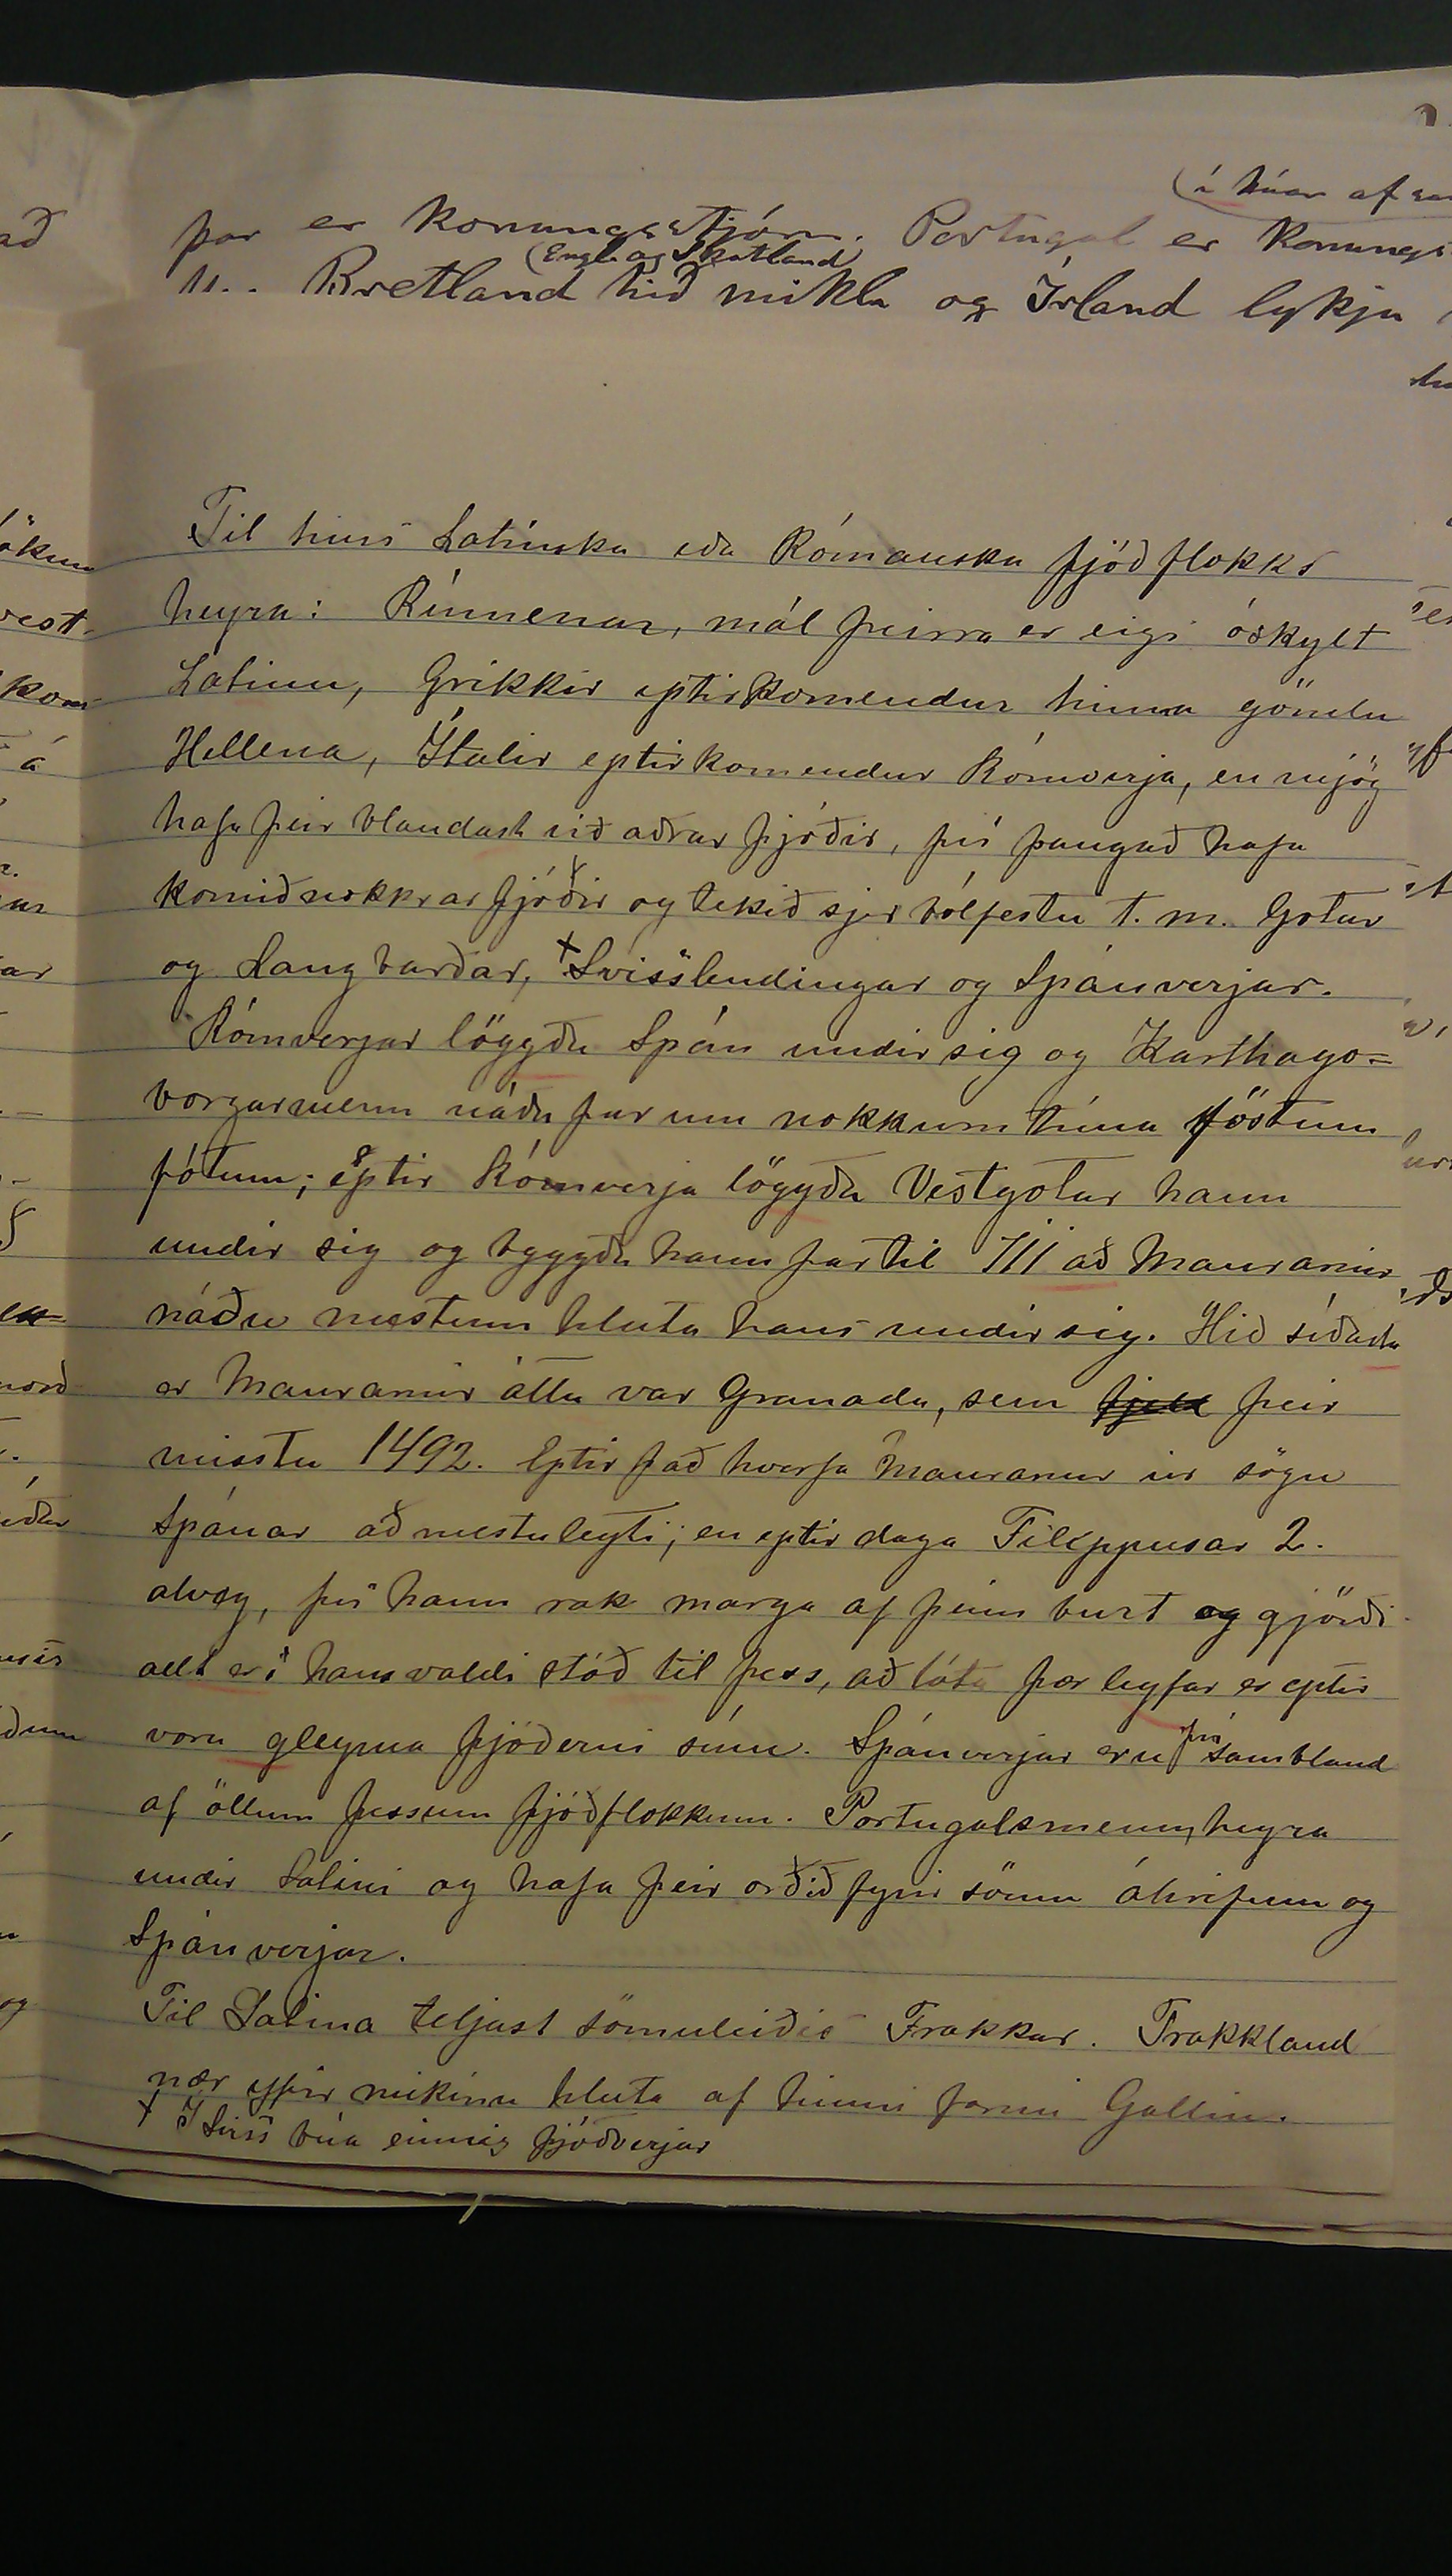 (í
þar er konungsstjórn. Portugal er konungs
(Engl. og Skotland)
11.. Bretland hið mikla og Írland lykja
Til hins Latínska eða Rómanska þjóðflokks
heyra: Rúmenar, mál þeirra er eigi óskylt
Latínu, Grikkir eptirkomendur hinna gömlu
Hellena, Ítalir eptirkomendur Rómverja, en mjög
hafa þeir blandast við aðrar þjóðir, því þangað hafa
komið nokkrar þjóðir og tekið sjer bólfestu t. m. Gotar
og Langbarðar, + Svisslendingar og Spánverjar.
Rómverjar löggðu Spán undir sig og Karthago=
borgarmenn náðu þar um nokkurn tíma föstum
fótum; eptir Rómverja löggðu Vestgotar hann
undir sig og byggðu hann þar til 711 að Mauranir
náðu mestum hluta hans undir sig. Hið síðasta
er Mauranir áttu var Granada, sem þeir
misstu 1492. Eptir það hverfa Mauranir úr sögu
Spánar að mestu leyti; en eptir daga Filippusar 2.
alveg, því hann rak marga af þeim burt og gjörði
allt er í hans valdi stóð til þess, að láta þær leyfar er eptir
voru gleyma þjóðerni sínu. Spánverjar eru því sambland
af öllum þessum þjóðflokkum. Portugalsmenn heyra
undir Latini og hafa þeir orðið fyrir sömu áhrifum og
Spánverjar.
Til Latina teljast sömuleiðis Frakkar. Frakkland
nær yfir mikinn hluta af hinni fornu Gallíu.
+ Í Sviss búa einnig þjóðverjar